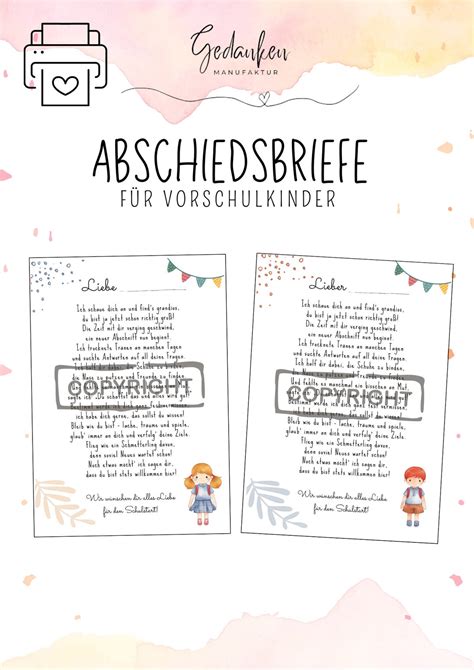 Gedanken
MANUFAKTUR
ABSCHIEDSBRIEFE
FÜR VORSCHULKINDER
Liebe
Ich schaue dich an und find's grandios,
du bist ja jetzt schon richtig groß!
Die Zeit mit dir verging geschwind,
ein neuer Abschnitt nun beginnt.
Ich trocknete Tränen an manchen Tagen
und suchte Antworten auf all deine Fragen.
Ich half dir dabei, die Schuhe zu binden,
die Nase zu putzen und Freunde zu finden.
COPYRIGHT
sagte ich "Du schaffst das und alles wird gut"
Ich hab dich gerne, das sollst du wissen!
Bleib wie du bist - lache, träume und spiele,
glaub' immer an dich und verfolg' deine Ziele.
Flieg wie ein Schmetterling davon,
denn soviel Neues wartet schon!
Noch etwas möcht' ich sagen dir,
dass du bist stets willkommen hier!
Wir wünschen dir alles Liebe
für den Schulstart!
Lieber
Ich schaue dich an und find's grandios,
du bist ja jetzt schon richtig groß!
Die Zeit mit dir verging geschwind,
ein neuer Abschnitt nun beginnt.
Ich trocknete Tränen an manchen Tagen
und suchte Antworten auf all deine Fragen.
Ich half dir dabei, die Schuhe zu binden,
die Nase zu putzen und Freunde zu finden.
Und fehlte es manchmal ein bisschen an Mut,
COPYRIGHT
Ich hab dich gerne, das sollst du wissen!
Bleib wie du bist - lache, träume und spiele,
glaub' immer an dich und verfolg' deine Ziele.
Flieg wie ein Schmetterling davon,
denn soviel Neues wartet schon!
Noch etwas möcht' ich sagen dir,
dass du bist stets willkommen hier!
Wir wünschen dir alles Liebe
für den Schulstart!